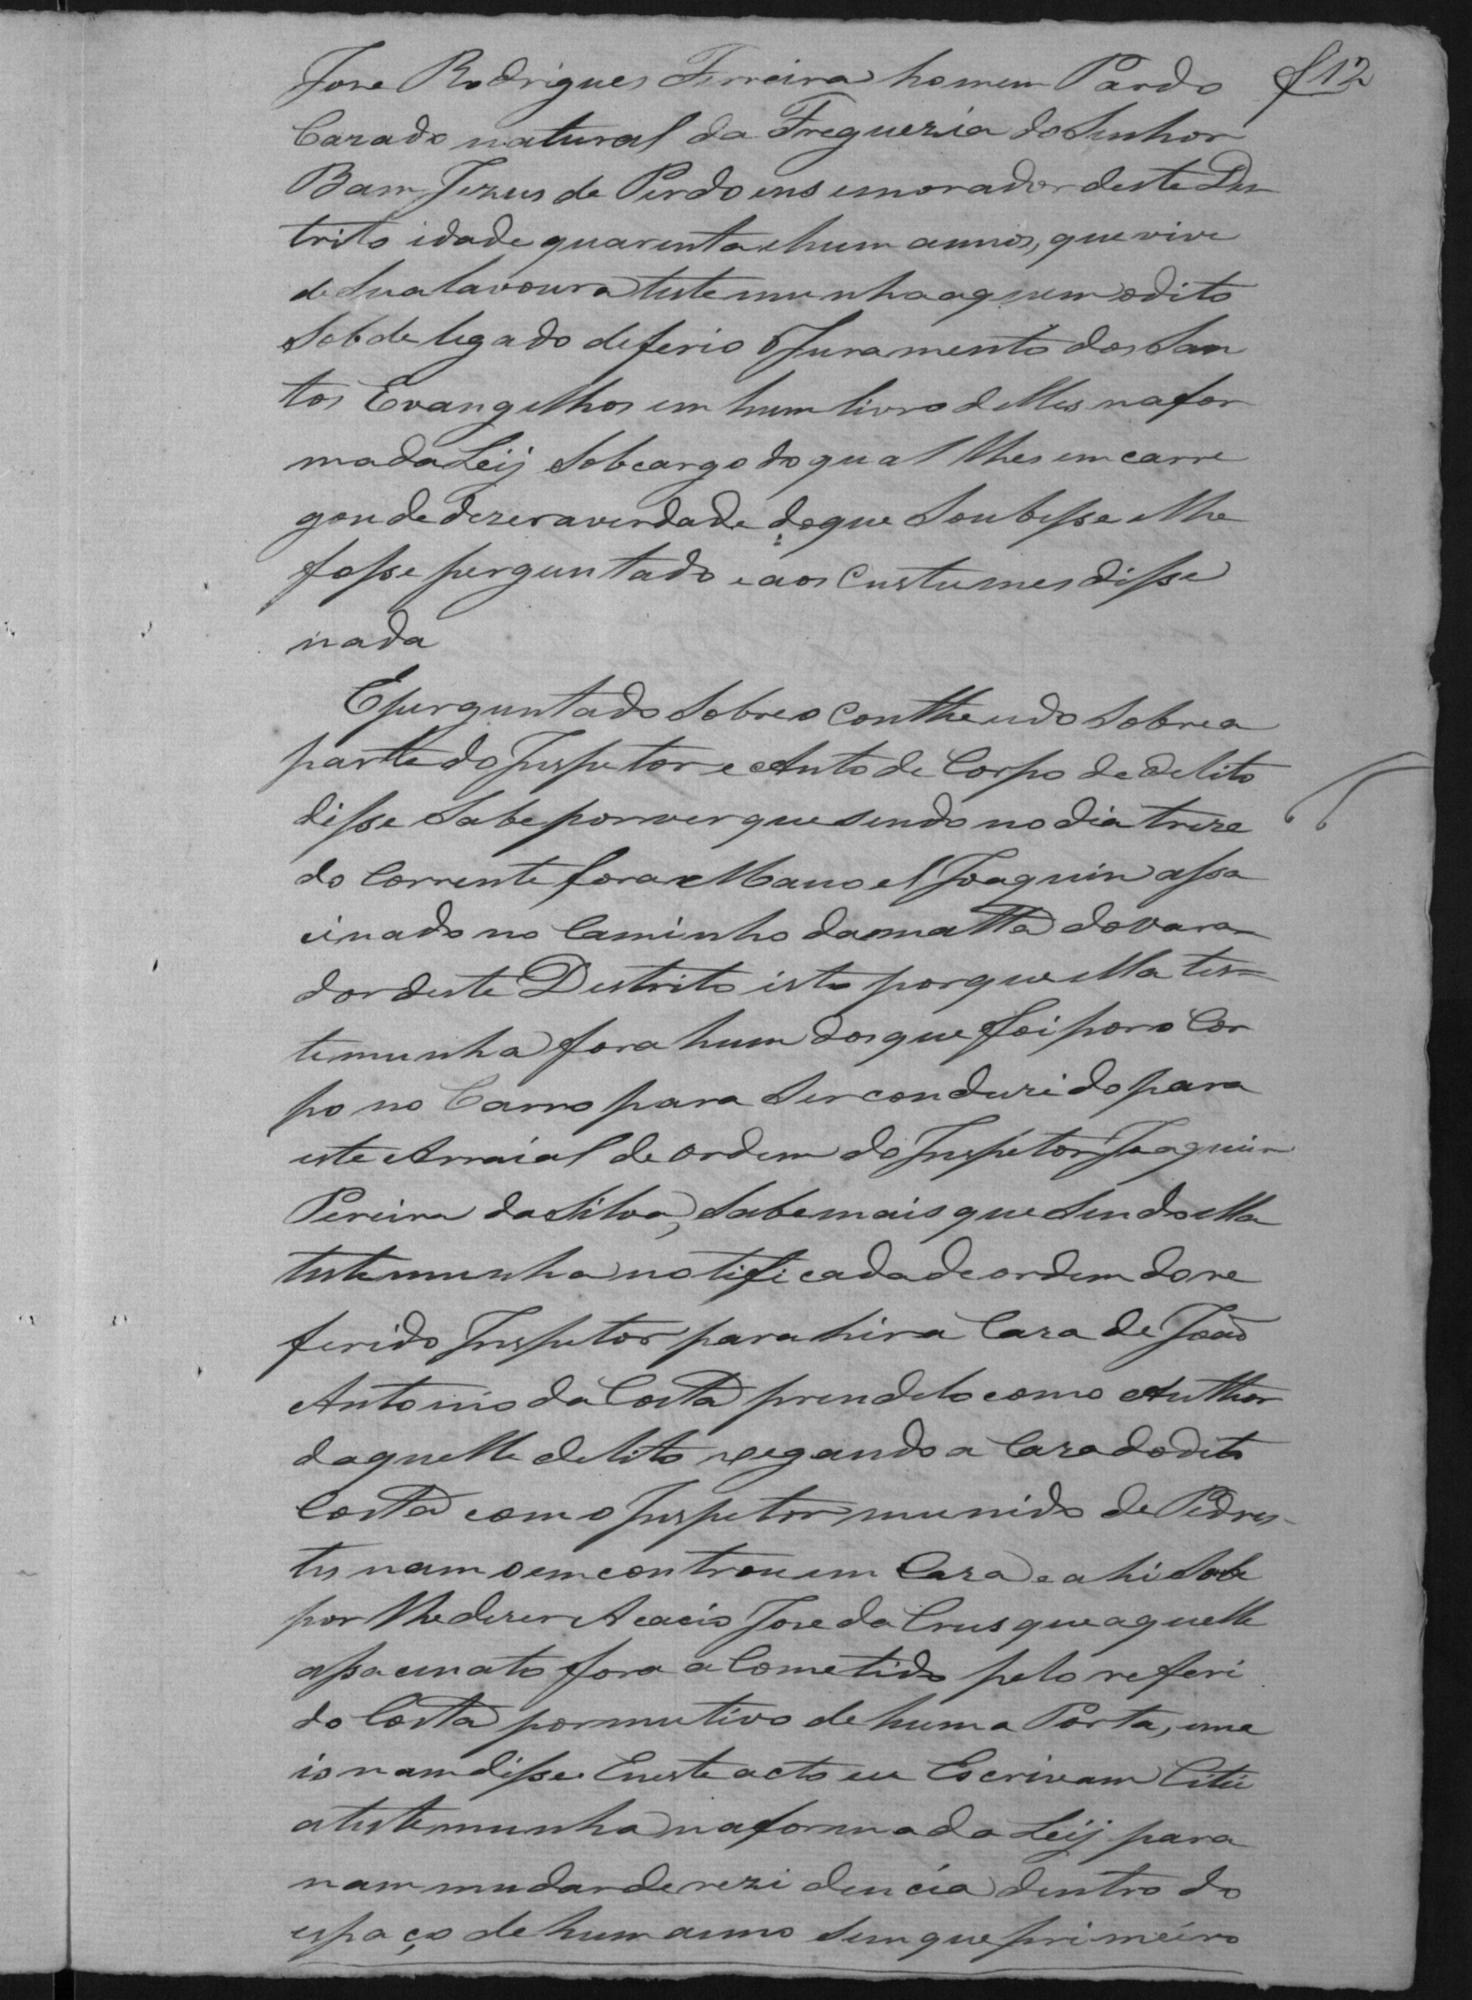 f 12
Jose Rodrigues Ferreira homem Pardo
Cazado natural da Freguezia do Senhor
Bam Jezus de Perdoens e morador deste Des
trito idade quarenta e hum annos, que vive
de Sua lavoura testemunha a quem o dito
Sobdelegado deferio o Juramento dos San
tos Evangelhos em hum livro delles na for
ma da Leij Sob cargo do qual lhes emcarre
gou de dezer a verdade do que Soubesse e lhe
fosse perguntado e aos Custumes disse
nada
E perguntado Sobre o Contheudo Sobre a
partte do Inspetor e Auto de Corpo de delito
disse Sabe por ver que sendo no dia treze
do Corrente fora Manoel Joaquim assa
cinado no Caminho da matta do vara
dor deste Destrito isto porque ella tes=
temunha fora hum dos que foi por o Cor
po no Carro para Ser conduzido para
este Arraial de ordem do Inspetor Joaquim
Pereira da Silva, Sabe mais que Sendo ella
testemunha notificada de ordem do re
ferido Inspetor para hir a Caza de João
Antonio da Costa prendelo como Author
daquelle delito xegando a Caza do dito
Costa com o Inspetor munido de Pedres-
tes nam o emcontrou em Caza e ahi Sabe
por lhe dezer Acacio Jose da Crus que aquelle
assacinato fora a Cometido pelo referi
do Costa por mutivo de huma Porta, e ma
is nam disse. E neste acto eu Escrivam Citei
a testemunha na forma da Leij para
nam mudar de rezidencia dentro do
espaço de hum anno Sem que primeiro